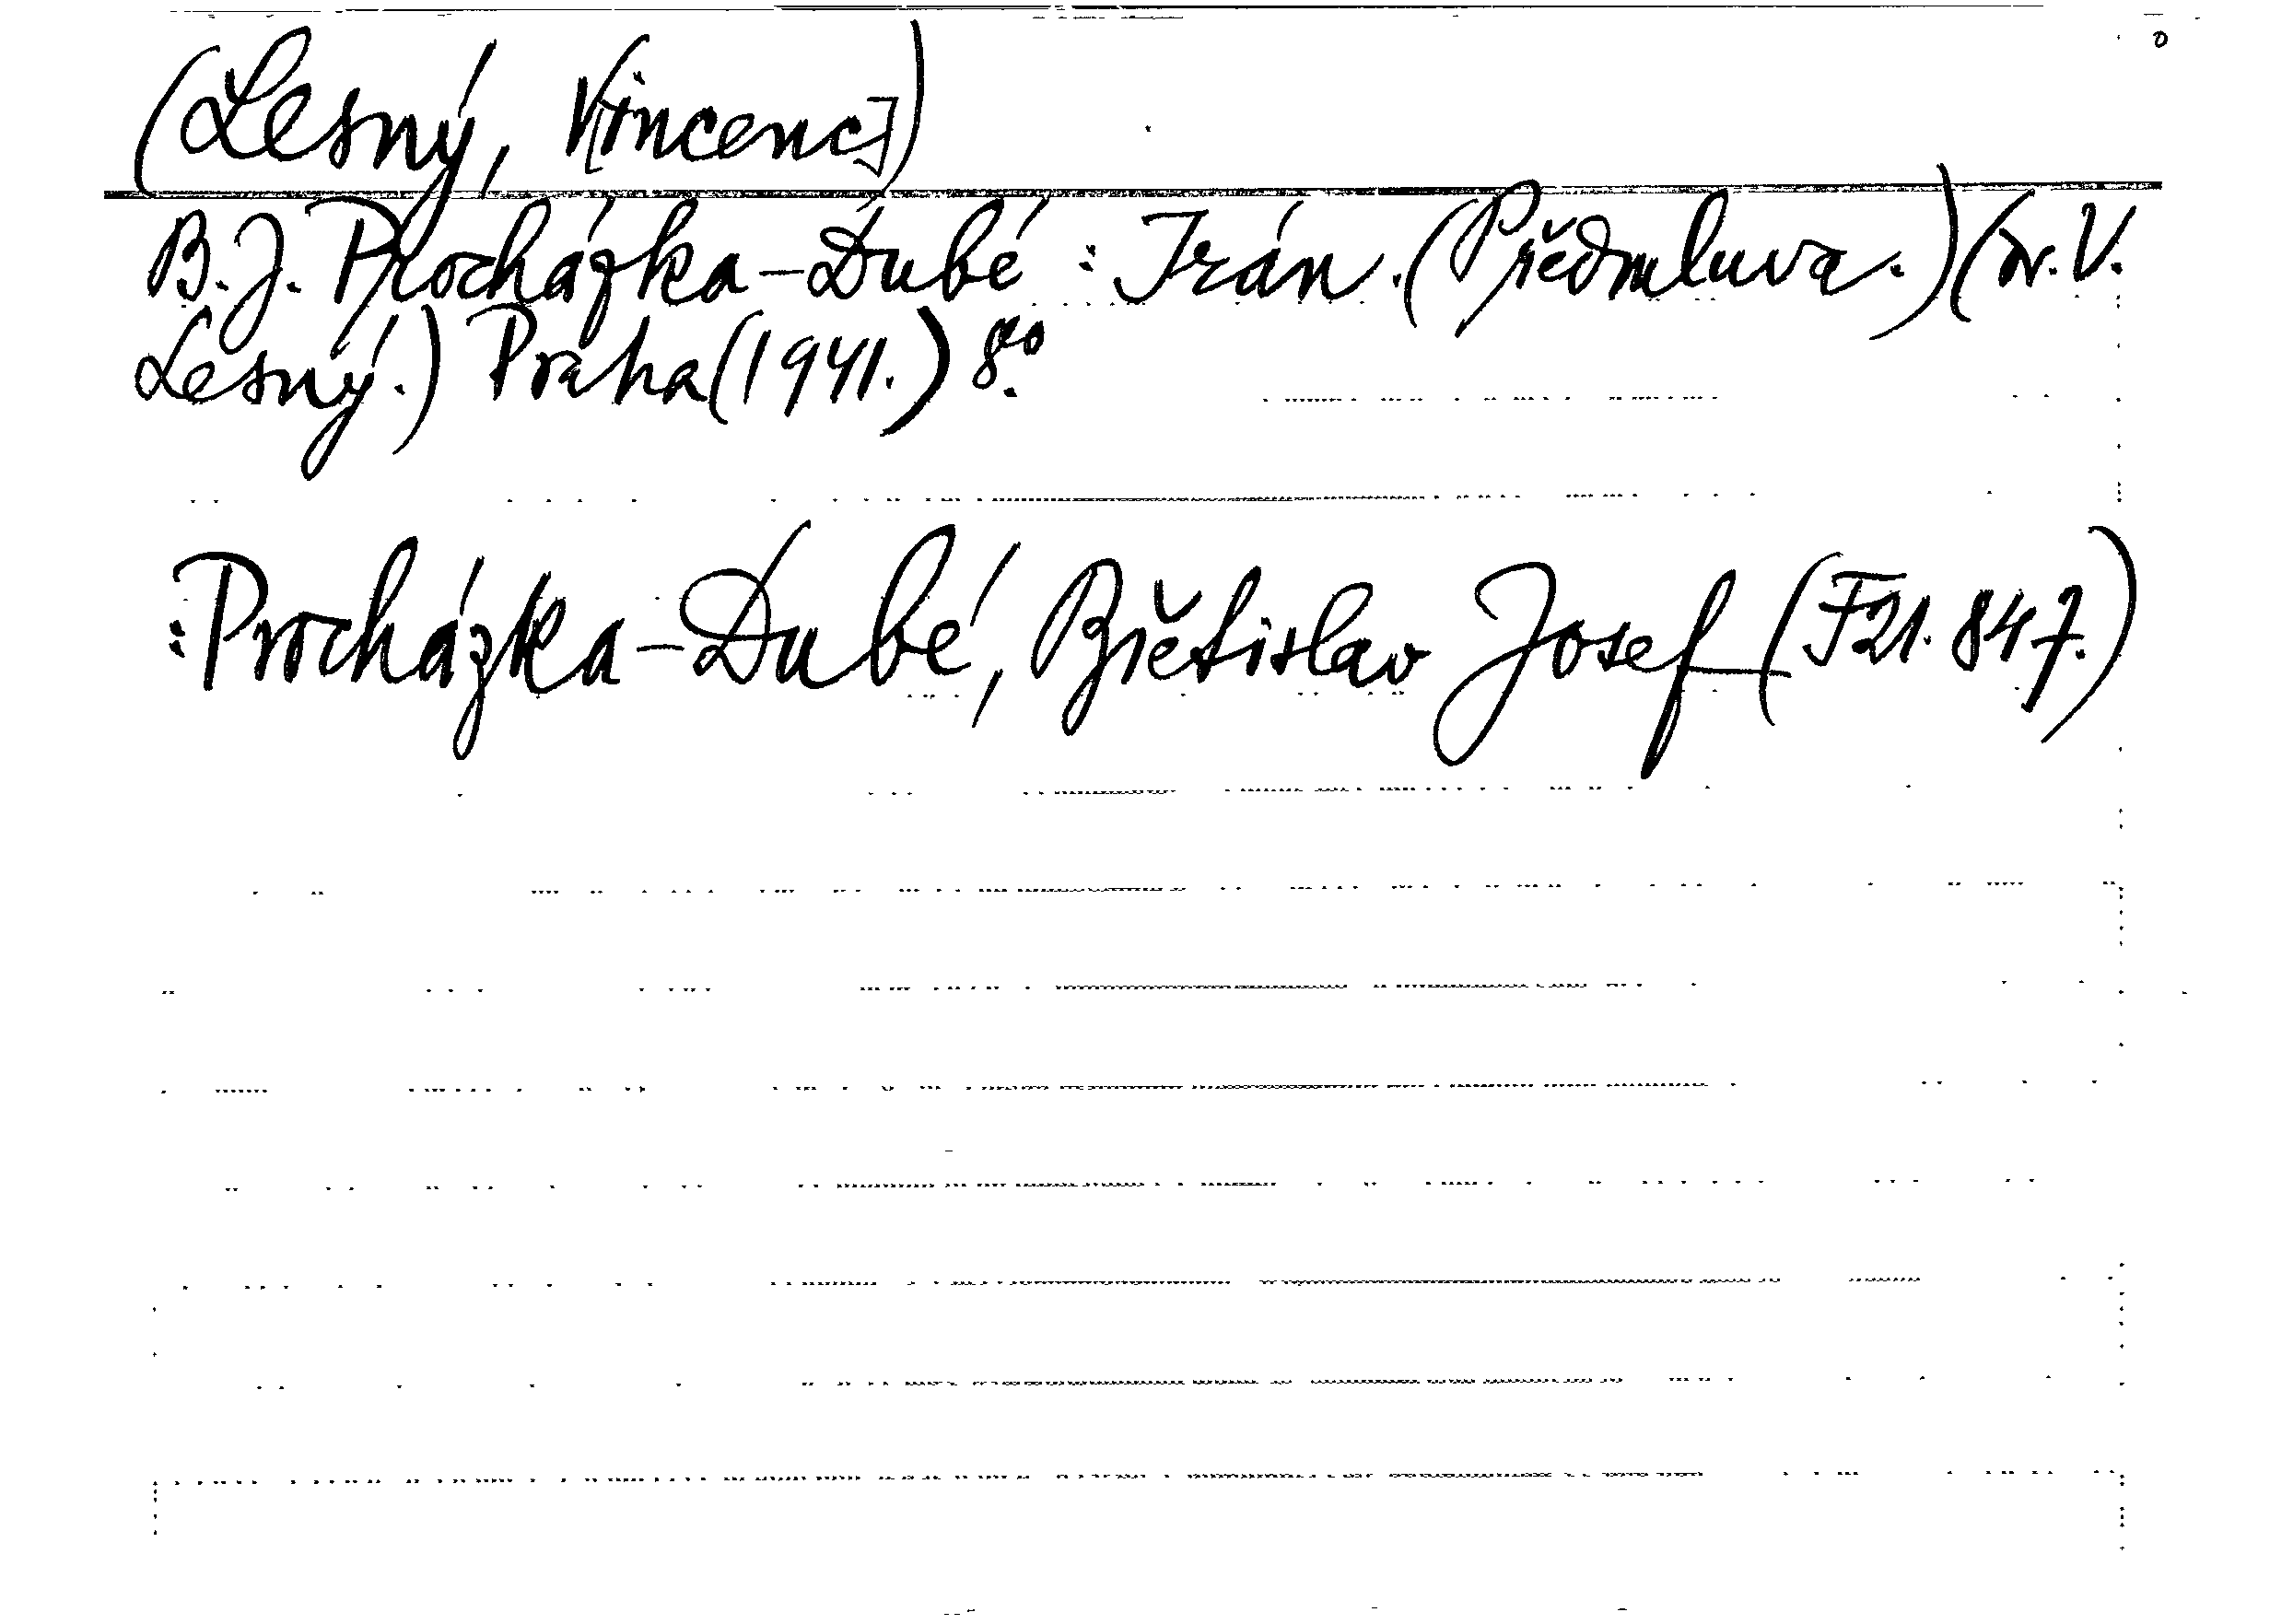 (Lesný, V[incenc])
B. J. Procházka-Dubé: Irán. (Předmluva.) (Dr. V.
Lesný.) Praha (1941.) 8°.
: Procházka-Dubé, Břetislav Josef (F21.847.)